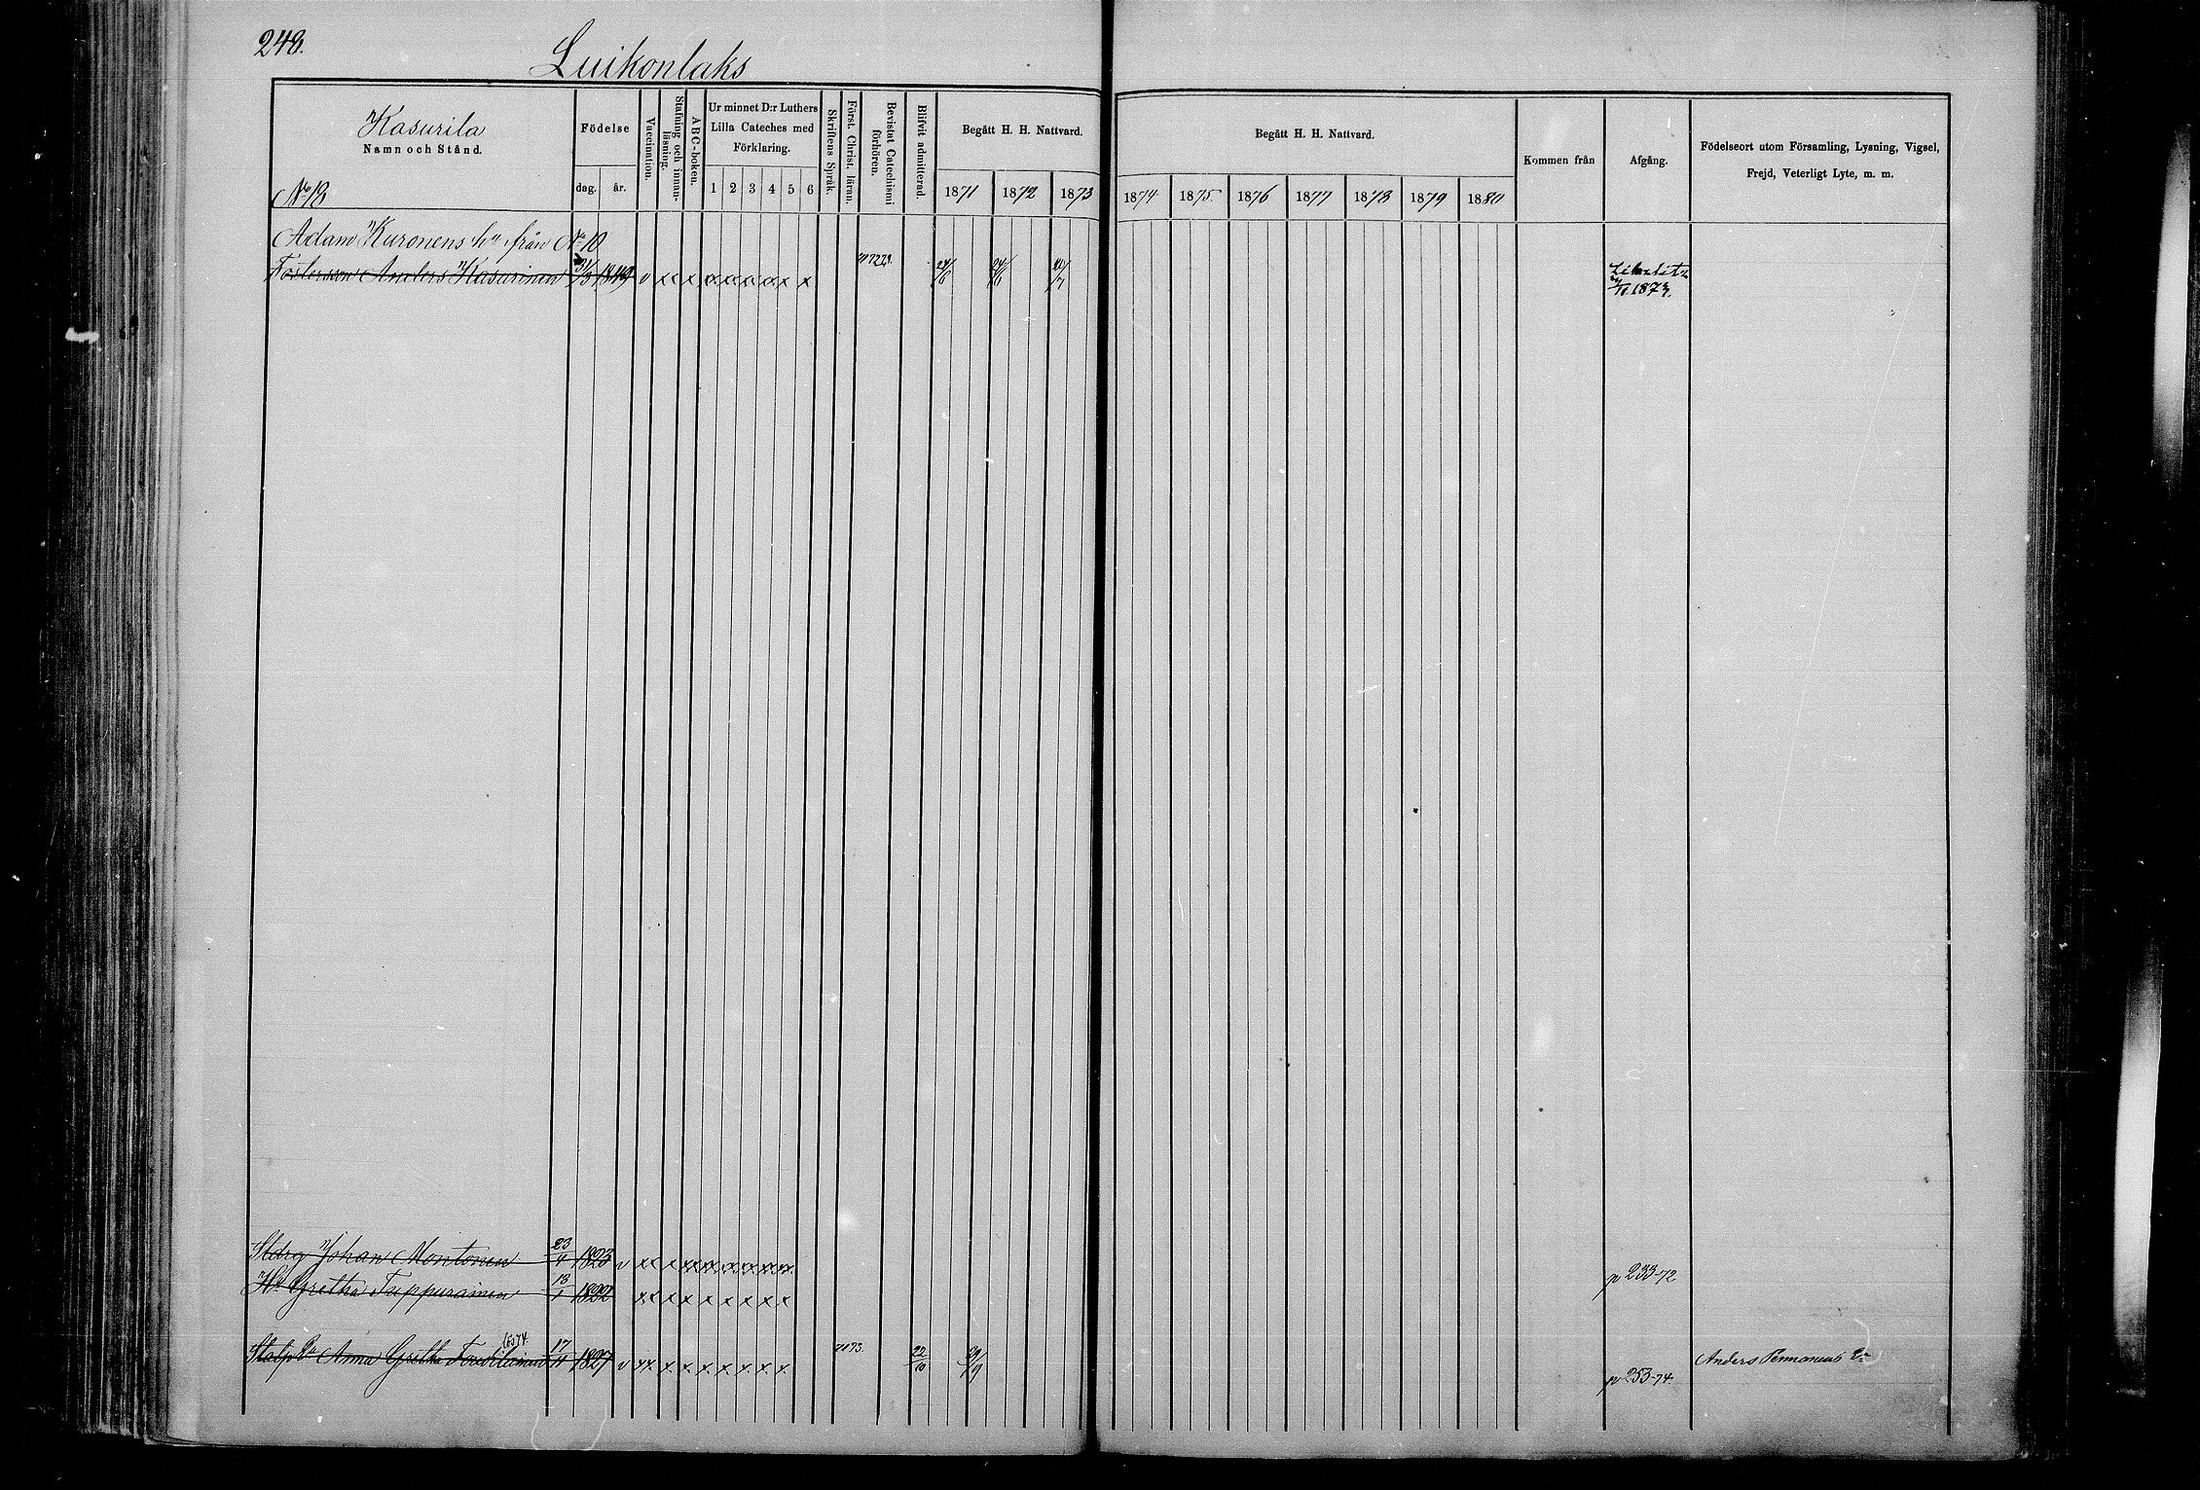 248.
Luikonlaks
Kasurila
Namn och Stånd.
No 18
Födelse
dag. år.
Vaccination.
Stafning och innan-
läsning.
A B C-boken.
Ur minnet D:r Luthers
Lilla Cateches med
Förklaring.
1 2 3 4 5 6
Skriftens Språk.
Först. Christ. läran.
Bevistat Catechismi
förhören.
Blifvit admitterad.
Begått H. H. Nattvard.
1871 1872 1873
Begått H. H. Nattvard.
1874 1875. 1876 1877 1878 1879 1880
Kommen från
Afgång.
Födelseort utom Församling, Lysning, Vigsel,
Frejd, Veterligt Lyte, m. m.
Adam Kuronens hu från No 10
Fosterson Anders Kasurinen 1849 v xx x x x x x x x 24/6 24/6
1873.
Stdrg Johan Montonen 23/4 1823 v xx x xx x x x x x
Hu Gretha Tuppurainen 13/1 1822 xx x x x x x x x p 233-72.
Anna Gretha 17/4 1827 v xx x x x x x x x 7173. 22/10 29/9 Anders Pennanens
p 253-74.